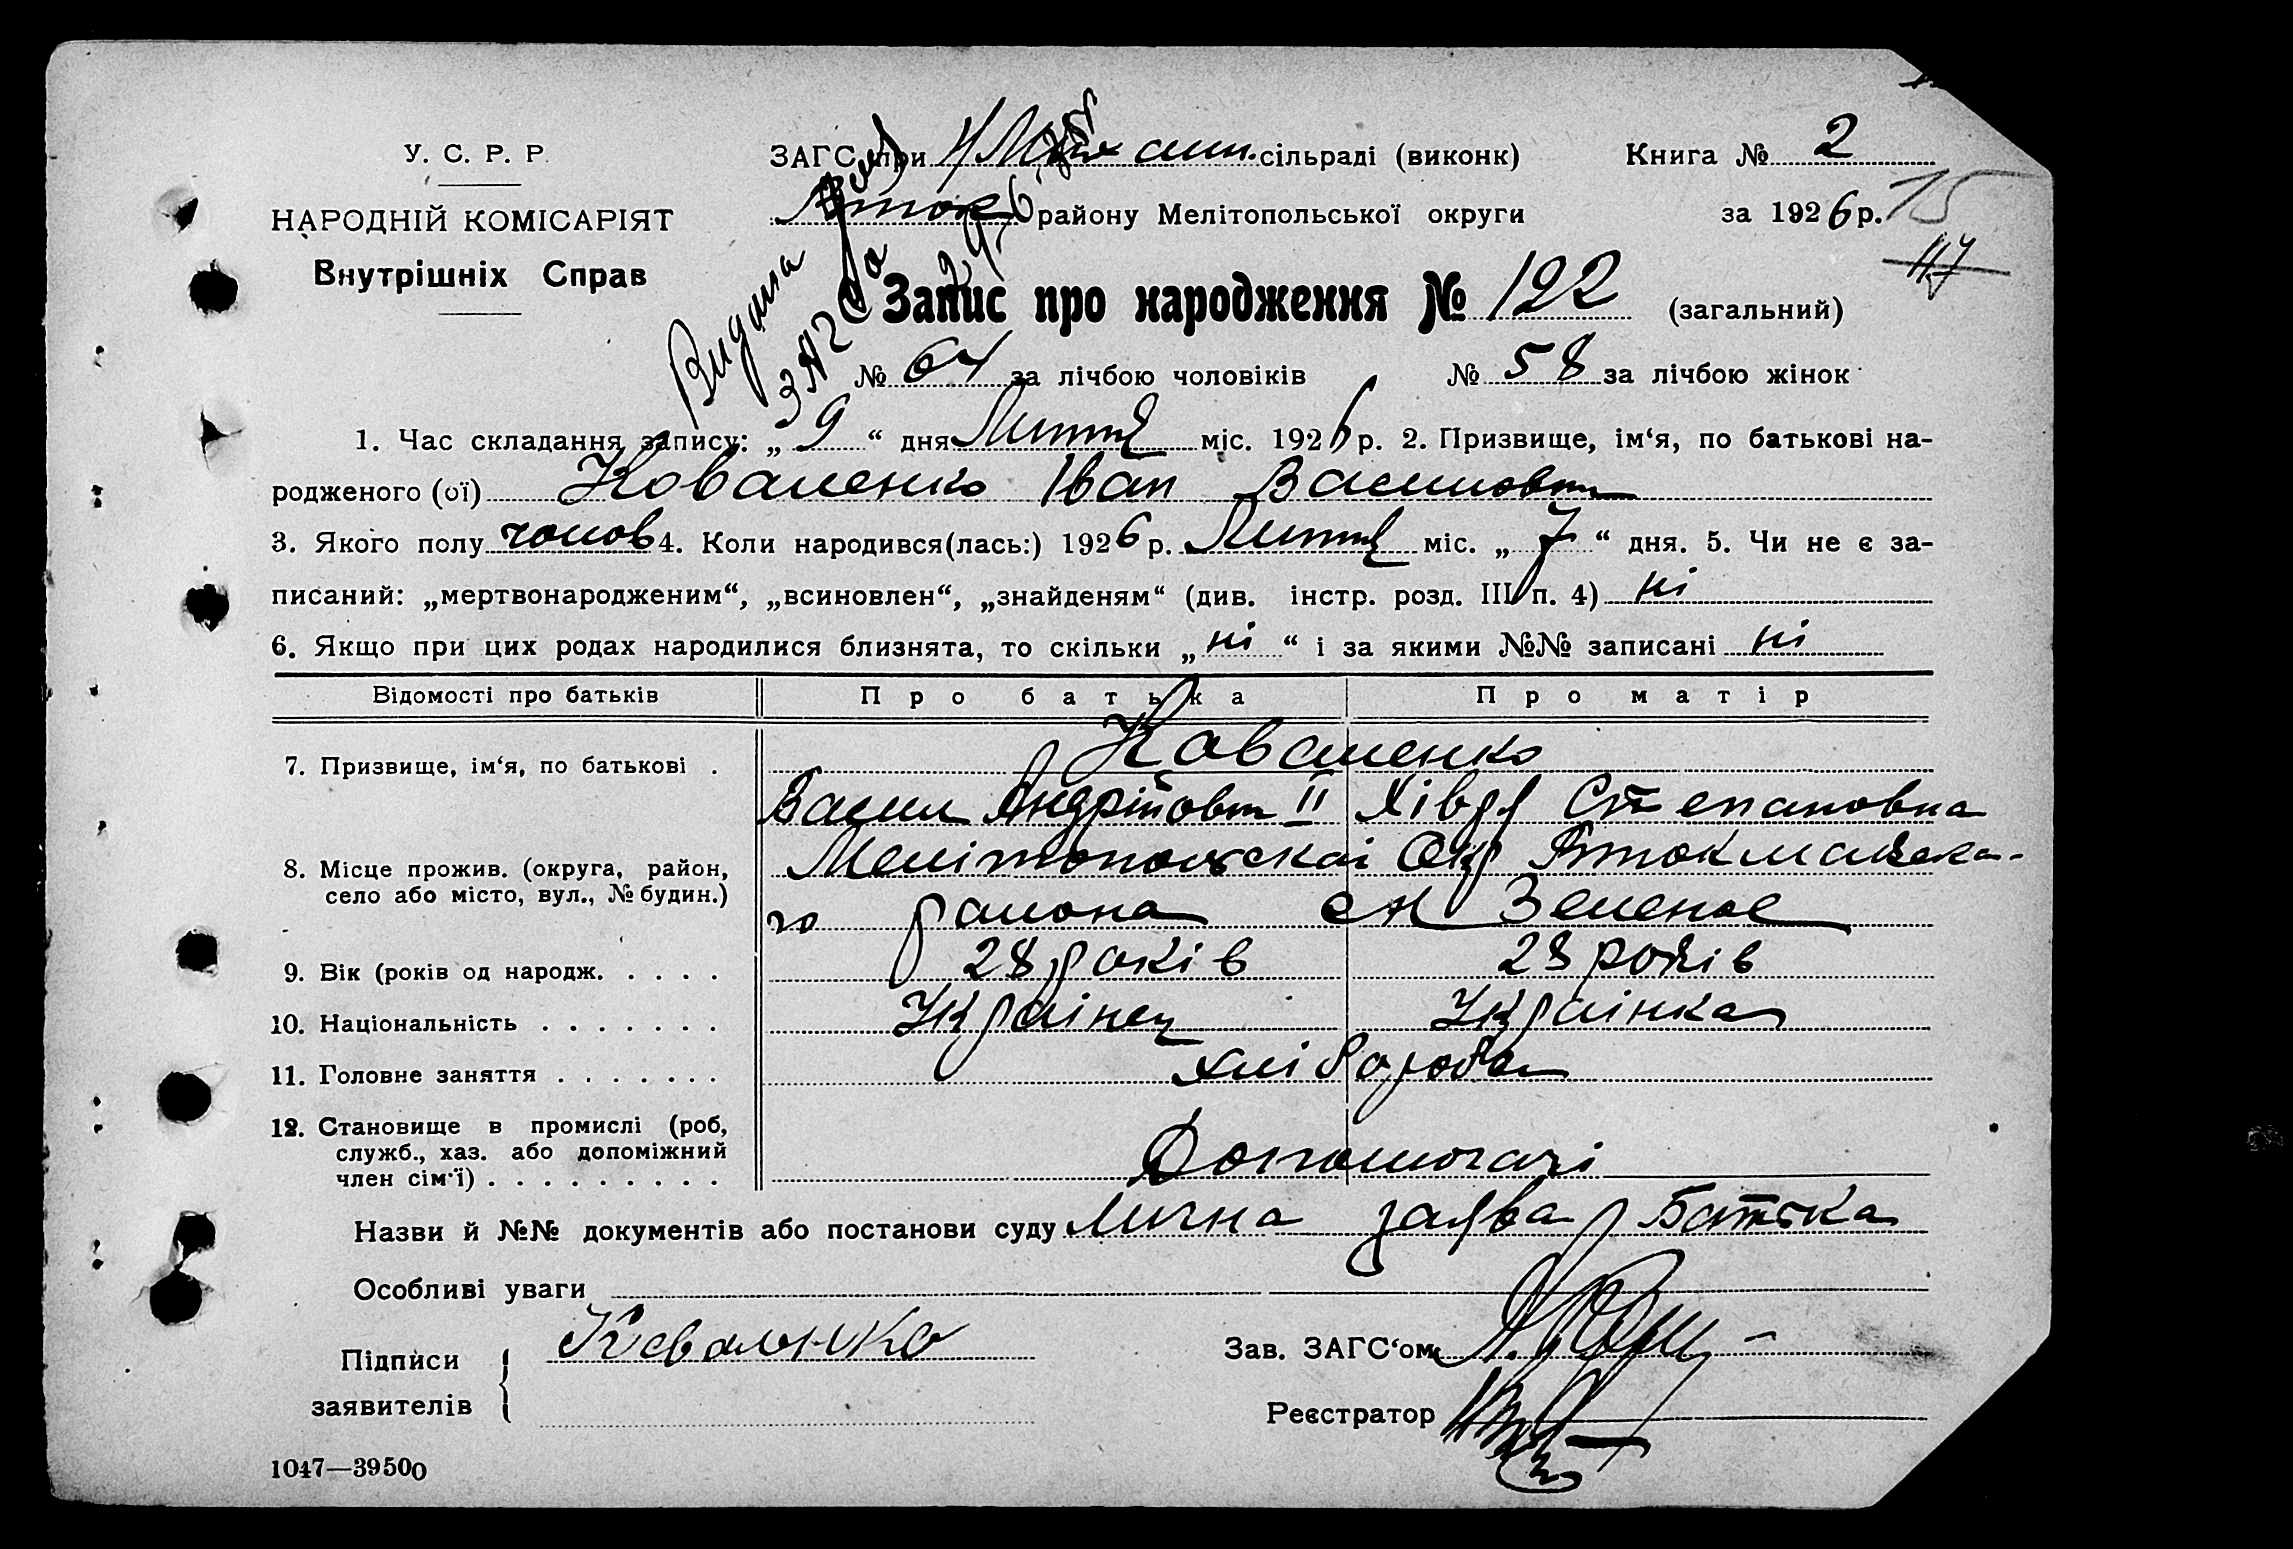 У. С. Р. Р.
НАРОДНІЙ КОМІСАРІЯТ
Внутрішніх Справ
ЗАГС при сільраді (виконк)
Книга № 2
району Мелітопольської округи
за 1926 р.
15
117
Видана
ЗАГС
Запис про народження № 122 (загальний)
№ 64 за лічбою чоловіків № 58 за лічбою жінок
1. Час складання запису: „ 9 “ дня Лютня міс. 1926 р. 2. Призвище, ім‘я, по батькові на-
родженого (ої) Коваленко Іван Васильович
3. Якого полу чолов 4. Коли народився(лась:) 1926 р. Лютня міс. „ 7 “ дня. 5. Чи не є за-
писаний: „мертвонародженим“, „всиновлен“, „знайденям“ (див. інстр. розд. III п. 4) ні
6. Якщо при цих родах народилися близнята, то скільки „ ні “ і за якими №№ записані ні
Відомості про батьків Про батька Про матір
7. Призвище, ім‘я, по батькові . Коваленко
Васил Андрійович II Хівря Степановна
8. Місце прожив. (округа, район, Мелітопольскаі Окр Втокмакска-
село або місто, вул., № будин.) го района сл Зеленое
9. Вік (років од народж. . . . . 28 років 28 років
10. Національність . . . . . . . Украінец Украінка
11. Головне заняття . . . . . . . Хлібороба
12. Становище в промислі (роб,
служб., хаз. або допоміжний
член сім‘ї) . . . . . . . . . Допомогачі
Назви й №№ документів або постанови суду Лична заява Батька
Особливі уваги
Підписи
заявителів
Коваленко
Зав. ЗАГС‘ом
Реєстратор
1047—39500